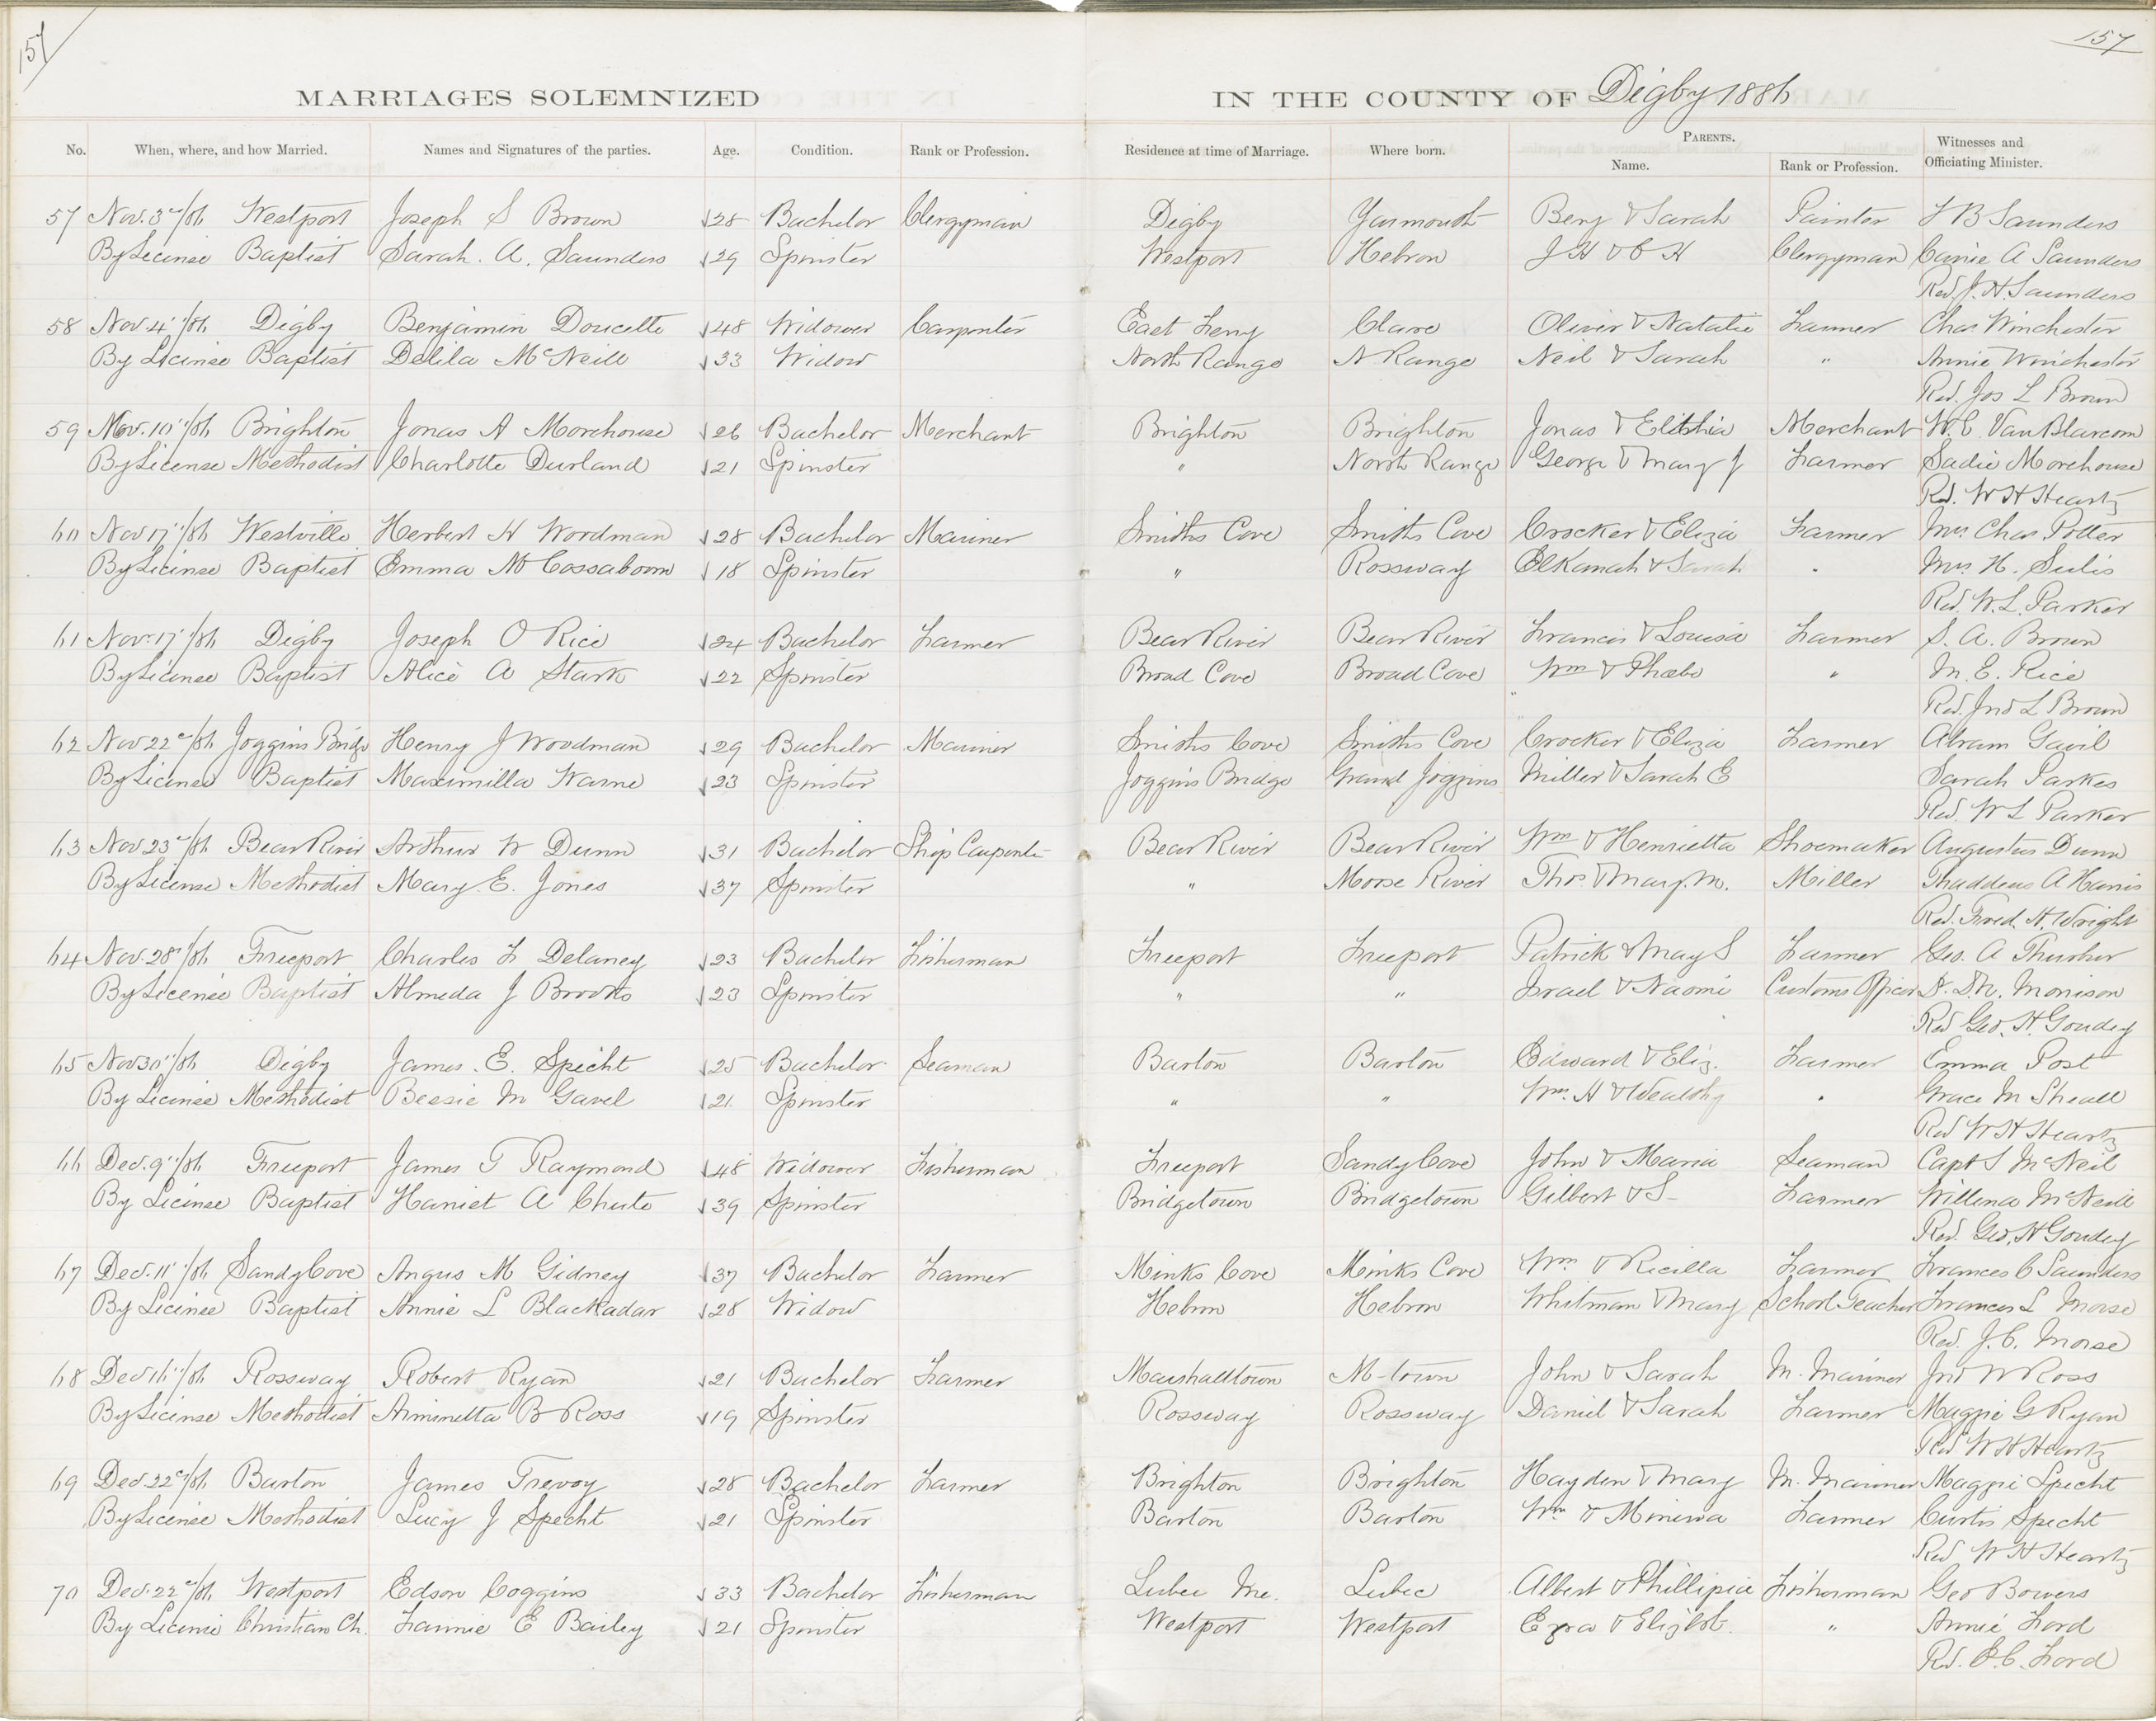 157 157
MARRIAGES SOLEMNIZED IN THE COUNTY OF Digby 1886
No. When, where, and how Married. Names and Signatures of the parties. Age. Condition. Rank or Profession. Residence at time of Marriage. Where born. PARENTS. Name. Rank or Profession. Witnesses and Officiating Minister.
57 Nov. 3rd/86 Westport Joseph S Brown 28 Bachelor Clergyman Digby Yarmouth Benj & Sarah Painter J B Saunders
By License Baptist Sarah. A. Saunders 29 Spinster Westport Hebron J H & C H Clergyman Carrie A Saunders
Rev. J. H. Saunders
58 Nov 4"/86 Digby Benjamin Doucette 48 Widower Carpenter East Ferry Clare Oliver & Natalie Farmer Chas Winchester
By License Baptist Delila McNeill 33 Widow North Range N Range Neil & Sarah " Annie Winchester
Rev. Jos L Brown
59 Nov. 10"/86 Brighton Jonas A Morehouse 26 Bachelor Merchant Brighton Brighton Jonas & Merchant W. E. VanBlarcom
By License Methodist Charlotte Durland 21 Spinster " North Range George & Mary J Farmer Sadie Morehouse
Rev. W H Heartz
60 Nov 17"/86 Westville Herbert H Woodman 28 Bachelor Mariner Smiths Cove Smiths Cove Crocker & Eliza Farmer Mrs Chas Potter
By License Baptist Emma M Cossaboom 18 Spinster " Rossway Elkanah & Sarah " Mrs H. Sulis
Rev. W. L. Parker
61 Nov. 17"/86 Digby Joseph O Rice 24 Bachelor Farmer Bear River Bear River Francis & Louisa Farmer S. A. Brown
By License Baptist Alice A Stark 22 Spinster Broad Cove Broad Cove Wm & Phœbe " M. E. Rice
Rev. Jno L Brown
62 Nov 22d/86 Joggins Bridge Henry J Woodman 29 Bachelor Mariner Smiths Cove Smiths Cove Crocker & Eliza Farmer Abram Gavil
By License Baptist Maximilla Warne 23 Spinster Joggins Bridge Grand Joggins Miller & Sarah E Sarah Parkes
Rev. W L Parker
63 Nov 23d/86 Bear River Arthur W Dunn 31 Bachelor Ship Carpenter Bear River Bear River Wm & Henrietta Shoemaker Augustus Dunn
By License Methodist Mary. E. Jones 37 Spinster " Moose River Thos & Mary. M. Miller Thaddeus A Harris
Rev. Fred. H. Wright
64 Nov. 28"/86 Freeport Charles F Delaney 23 Bachelor Fisherman Freeport Freeport Patrick & Mary S Farmer Geo. A Thurber
By License Baptist Almeda J Brooks 23 Spinster " " Israel & Naomi Customs Officer Morrison
Rev Geo. H. Goudey
65 Nov 30"/86 Digby James. E. Specht 25 Bachelor Seaman Barton Barton Edward & Eliz. Farmer Emma Post
By License Methodist Bessie M Gavel 21 Spinster " " Wm. H & Wealthy " Grace M Sheall
Rev W H Heartz
66 Dec. 9"/86 Freeport James T Raymond 48 Widower Fisherman Freeport Sandy Cove John & Maria Seaman Capt S McNeil
By License Baptist Harriet A Chute 39 Spinster Bridgetown Bridgetown Gilbert & S- Farmer Willena McNeill
Rev. Geo. H Goudey
67 Dec. 11"/86 Sandy Cove Angus M Gidney 37 Bachelor Farmer Minks Cove Minks Cove Wm & Ricilla Farmer Frances C Saunders
By License Baptist Annie L Blackadar 28 Widow Hebron Hebron Whitman & Mary School Teacher Frances L Morse
Rev. J. C. Morse
68 Dec 16"/86 Rossway Robert Ryan 21 Bachelor Farmer Marshalltown M-town John & Sarah M. Mariner Jno W Ross
By License Methodist Arminetta B Ross 19 Spinster Rossway Rossway Daniel & Sarah Farmer Maggie G Ryan
Rev W H Heartz
69 Dec 22d/86 Barton James Trevoy 28 Bachelor Farmer Brighton Brighton Hayden & Mary M. Mariner Maggie Specht
By License Methodist Lucy J Specht 21 Spinster Barton Barton Wm & Minerva Farmer Curtis Specht
Rev W H Heartz
70 Dec. 22d/86 Westport Edson Coggins 33 Bachelor Fisherman Lubec Me. Lubec Albert & Phillipia Fisherman Geo Bowers
By License Christian Ch. Fannie E Bailey 21 Spinster Westport Westport Ezra & Elizbt. " Annie Ford
Rev. E. C. Ford